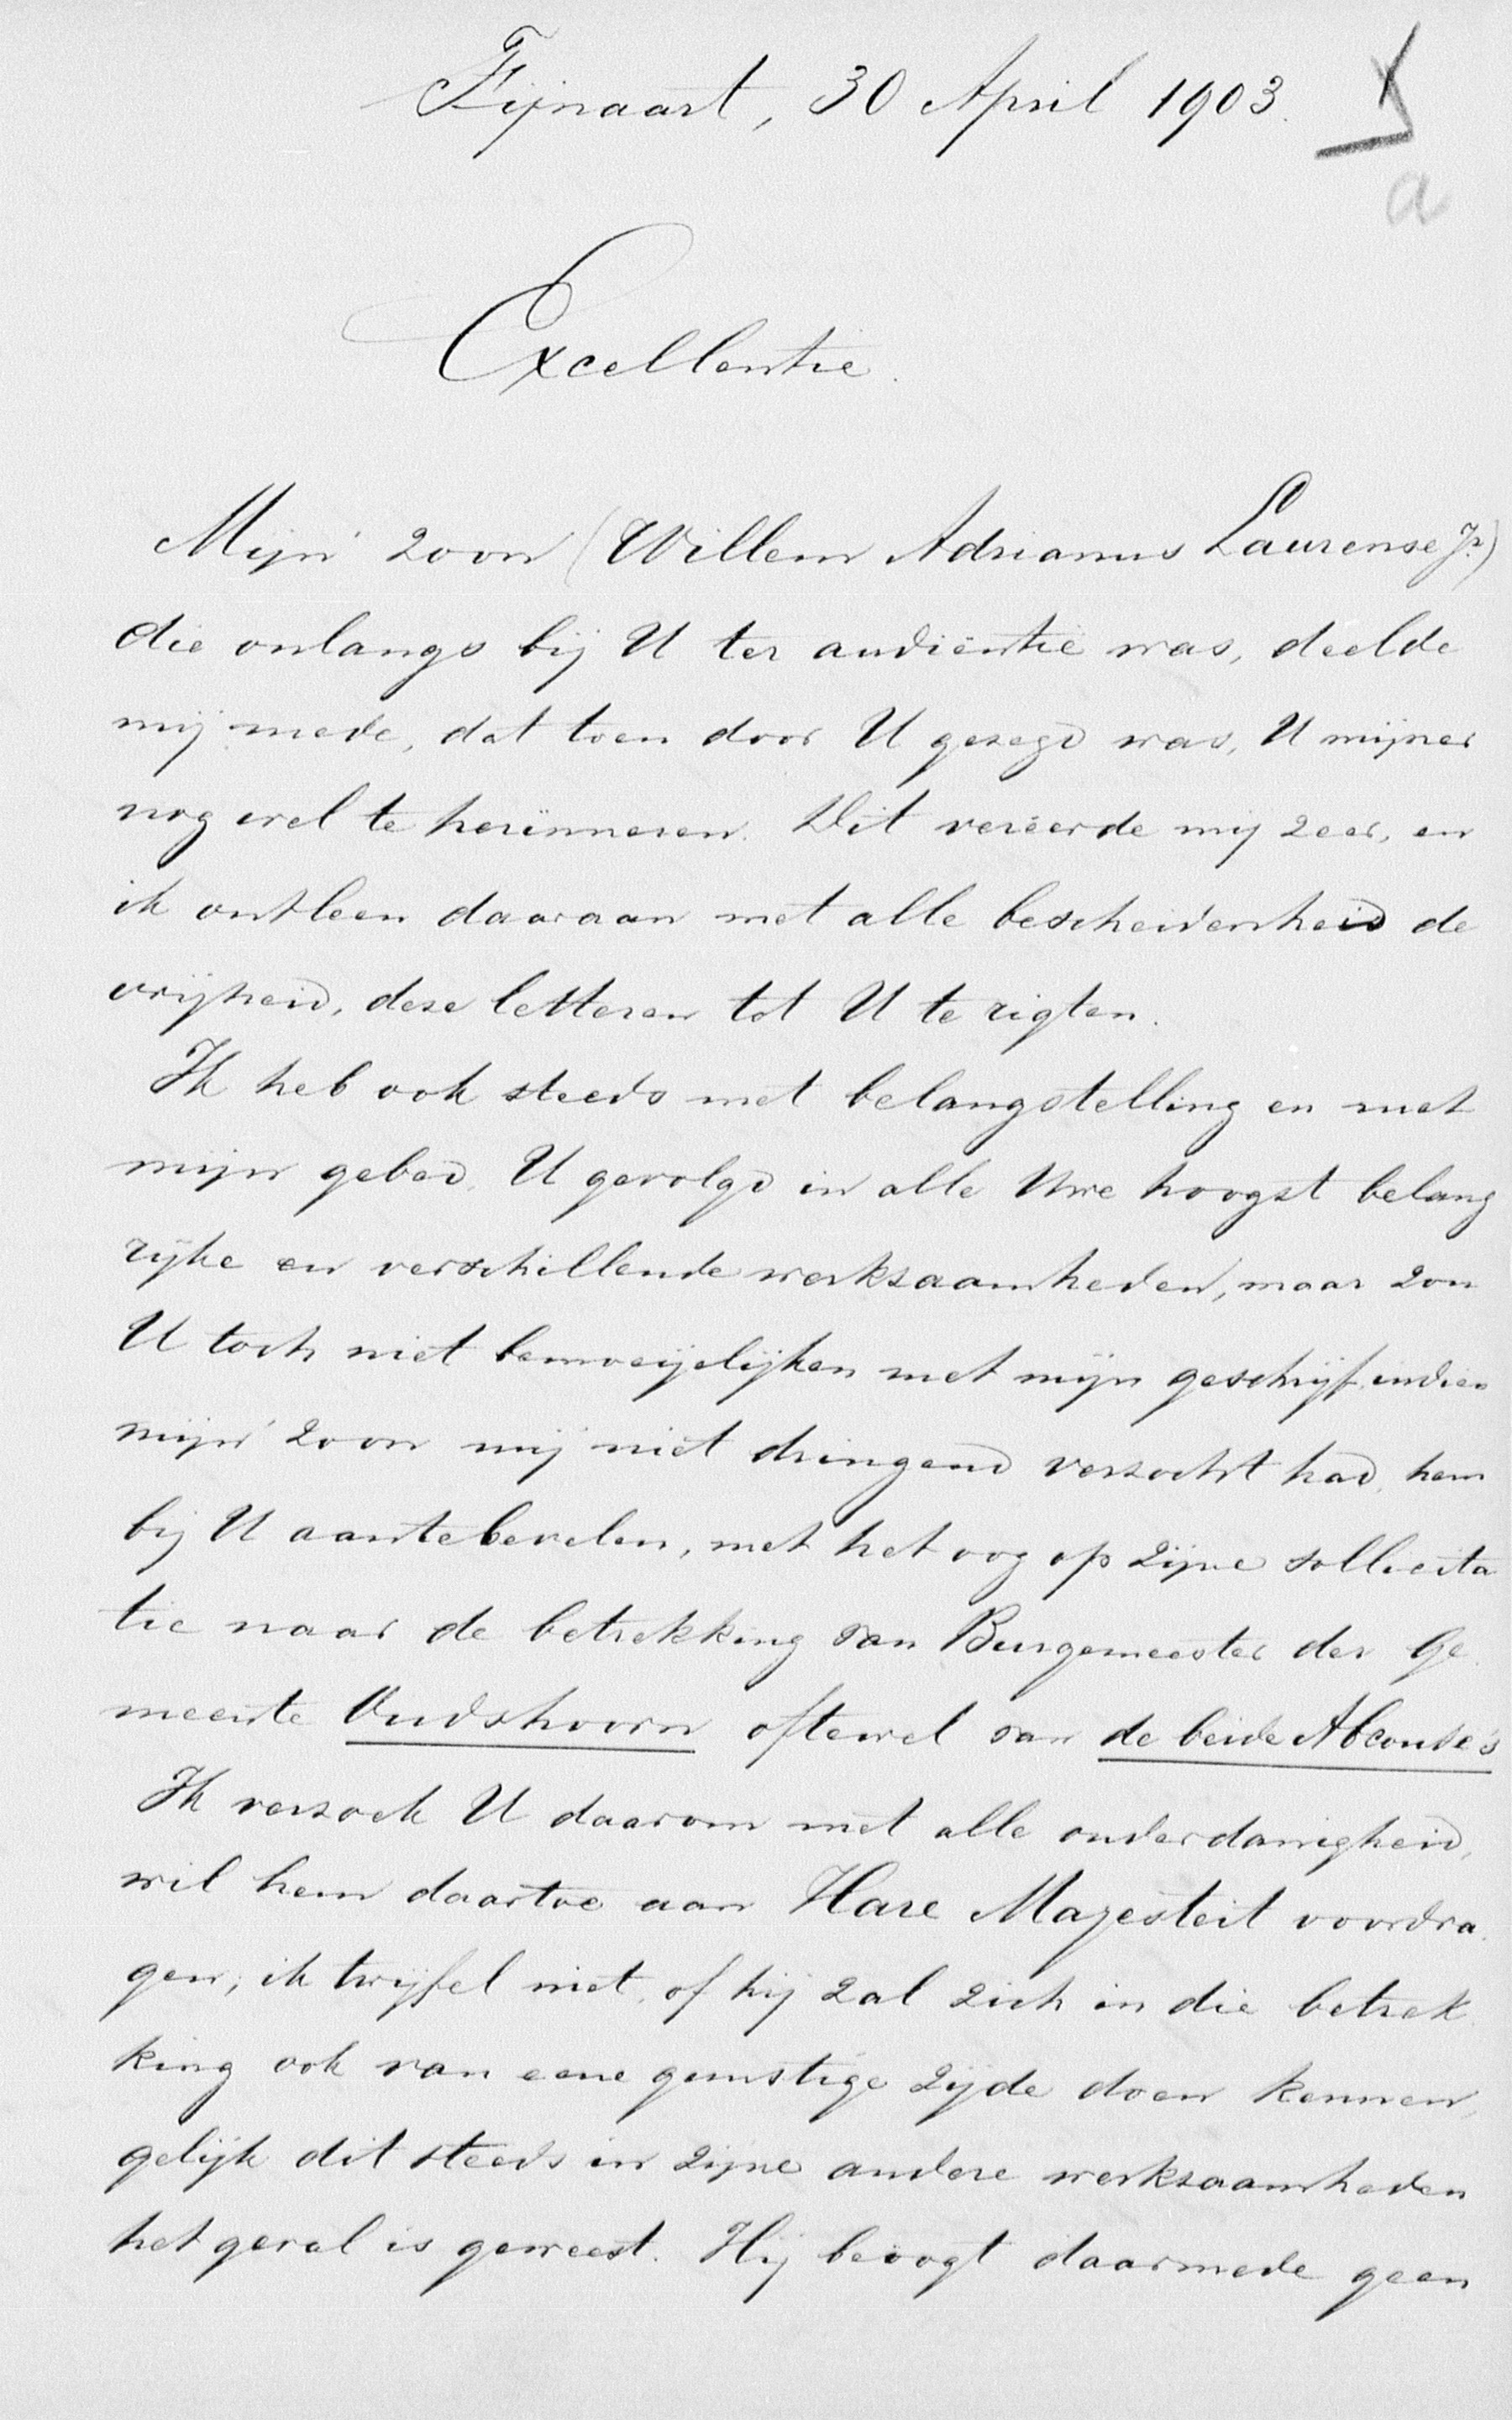 Fijnaart, 30 April 1903.
a
Excellentie.
Mijn zoon (Willem Adrianus Laurense Jr.)
die onlangs bij U ter audiëntie was, deelde
mij mede, dat toen door U gezegd was, U mijner
nog wel te herinneren. Dit vereerde mij zeer, en
ik ontleen daaraan met alle bescheidenheid de
vrijheid, deze letteren tot U te rigten.
Ik heb ook steeds met belangstelling en met
mijn gebed, U gevolgd in alle Uwe hoogst belang
rijke en verschillende werkzaamheden, maar zou
U toch niet bemoeijelijken met mijn geschrijf, indien
mijn zoon mij niet dringend verzocht had, hem
bij U aantebevelen, met het oog op zijne sollicita
tie naar de betrekking van Burgemeester der Ge
meente Oudshoorn oftewel van de beide Abcoude's
Ik verzoek U daarom met alle onderdanigheid,
wil hem daartoe aan Hare Majesteit voordra
gen; ik twijfel niet, of hij zal zich in die betrek
king ook van eene gunstige zijde doen kennen,
gelijk dit steeds in zijne andere werkzaamheden
het geval is geweest. Hij beoogt daarmede geen